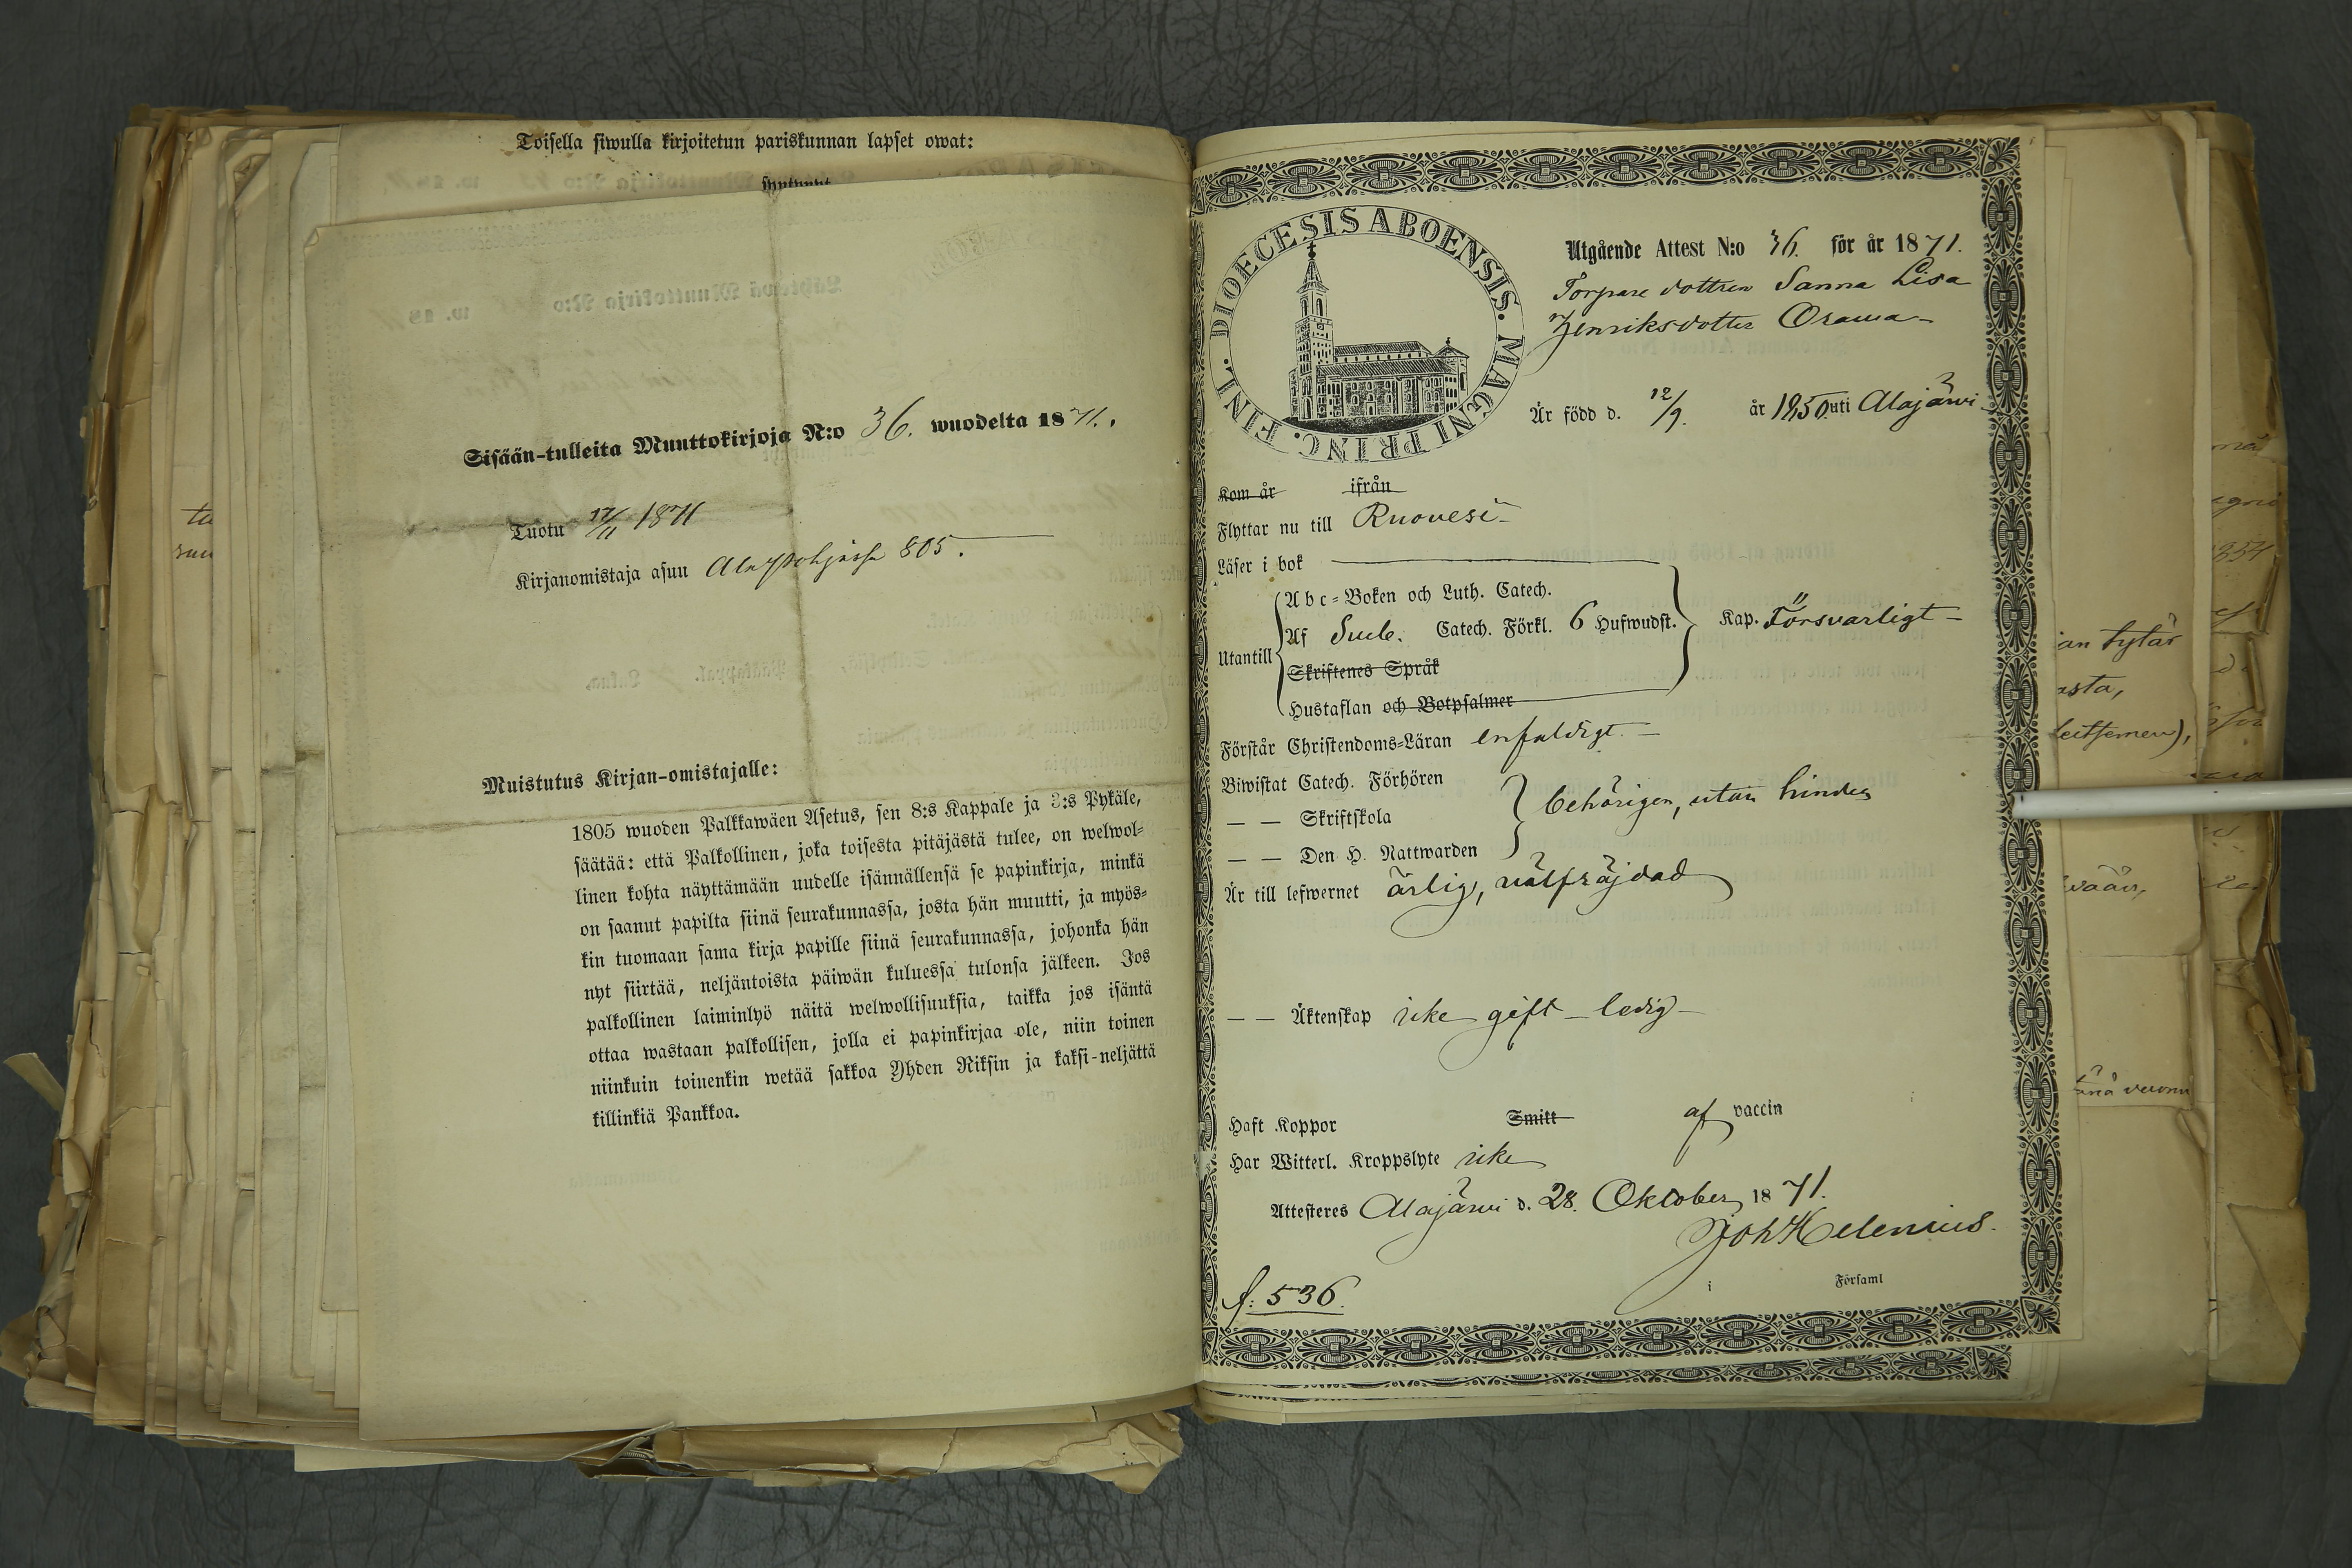 Toisella siwulla kirjoitetun pariskunnan lapset owat:
syntynyt
Sisään-tulleita Muuttokirjoja N:o 36. wuodelta 1871.
Tuotu 17/11 1871
Kirjanomistaja asuu 805.
Muistutus Kirjan-omistajalle:
1805 wuoden Palkkawäen Asetus, sen 8:s Kappale ja 3:s Pykäle,
säätää: että Palkollinen, joka toisesta pitäjästä tulee, on welwol-
linen kohta näyttämään uudelle isännällensä se papinkirja, minkä
on saanut papilta siinä seurakunnassa, josta hän muutti, ja myös-
kin tuomaan sama kirja papille siinä seurakunnassa, johonka hän
nyt siirtää, neljäntoista päiwän kuluessa tulonsa jälkeen. Jos
palkollinen laiminlyö näitä welwollisuuksia, taikka jos isäntä
ottaa wastaan palkollisen, jolla ei papinkirjaa ole, niin toinen
niinkuin toinenkin wetää sakkoa Yhden Riksin ja kaksi-neljättä
killinkiä Pankkoa.
DIOECESIS ABOENSIS. MAGNI PRINC. FINL.
Utgående Attest N:o 36. för år 1871.
Torpare dottren Sanna Lisa
Henriksdotter Orawa
Är född d. 12/9. år 1850 uti Alajärwi
Kom år ifrån
Flyttar nu till Ruovesi
Läser i bok
Utantill
Abc-Boken och Luth. Catech.
Af Sueb. Catech. Förkl. 6 Hufwudst. Kap. Försvarligt
Skriftenes Språk
Hustaflan och Botpsalmer
Förstår Christendoms-Läran enfaldigt.
Biwistat Catech. Förhören
— — Skriftskola behörigen, utan hinder
— — Den H. Nattwarden
Är till lefwernet ärlig, välfräjdad
— — Äktenskap icke gift - ledig
Haft Koppor Smitt af vaccin
Har Witterl. Kroppslyte icke
Attesteres Alajärwi d. 28. Oktober 1871.
Joh Helenius.
i Församl
f: 536.
an tytär